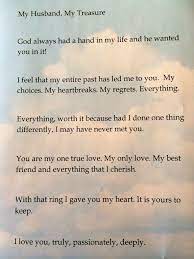 My Husband, My Treasure
God always had a hand in my life and he wanted
you in it!
I feel that my entire past has led me to you.  My
choices. My heartbreaks. My regrets. Everything.
Everything, worth it because had I done one thing
differently, I may have never met you.
You are my one true love. My only love. My best
friend and everything that I cherish.
With that ring I gave you my heart. It is yours to
keep.
I love you, truly, passionately, deeply.